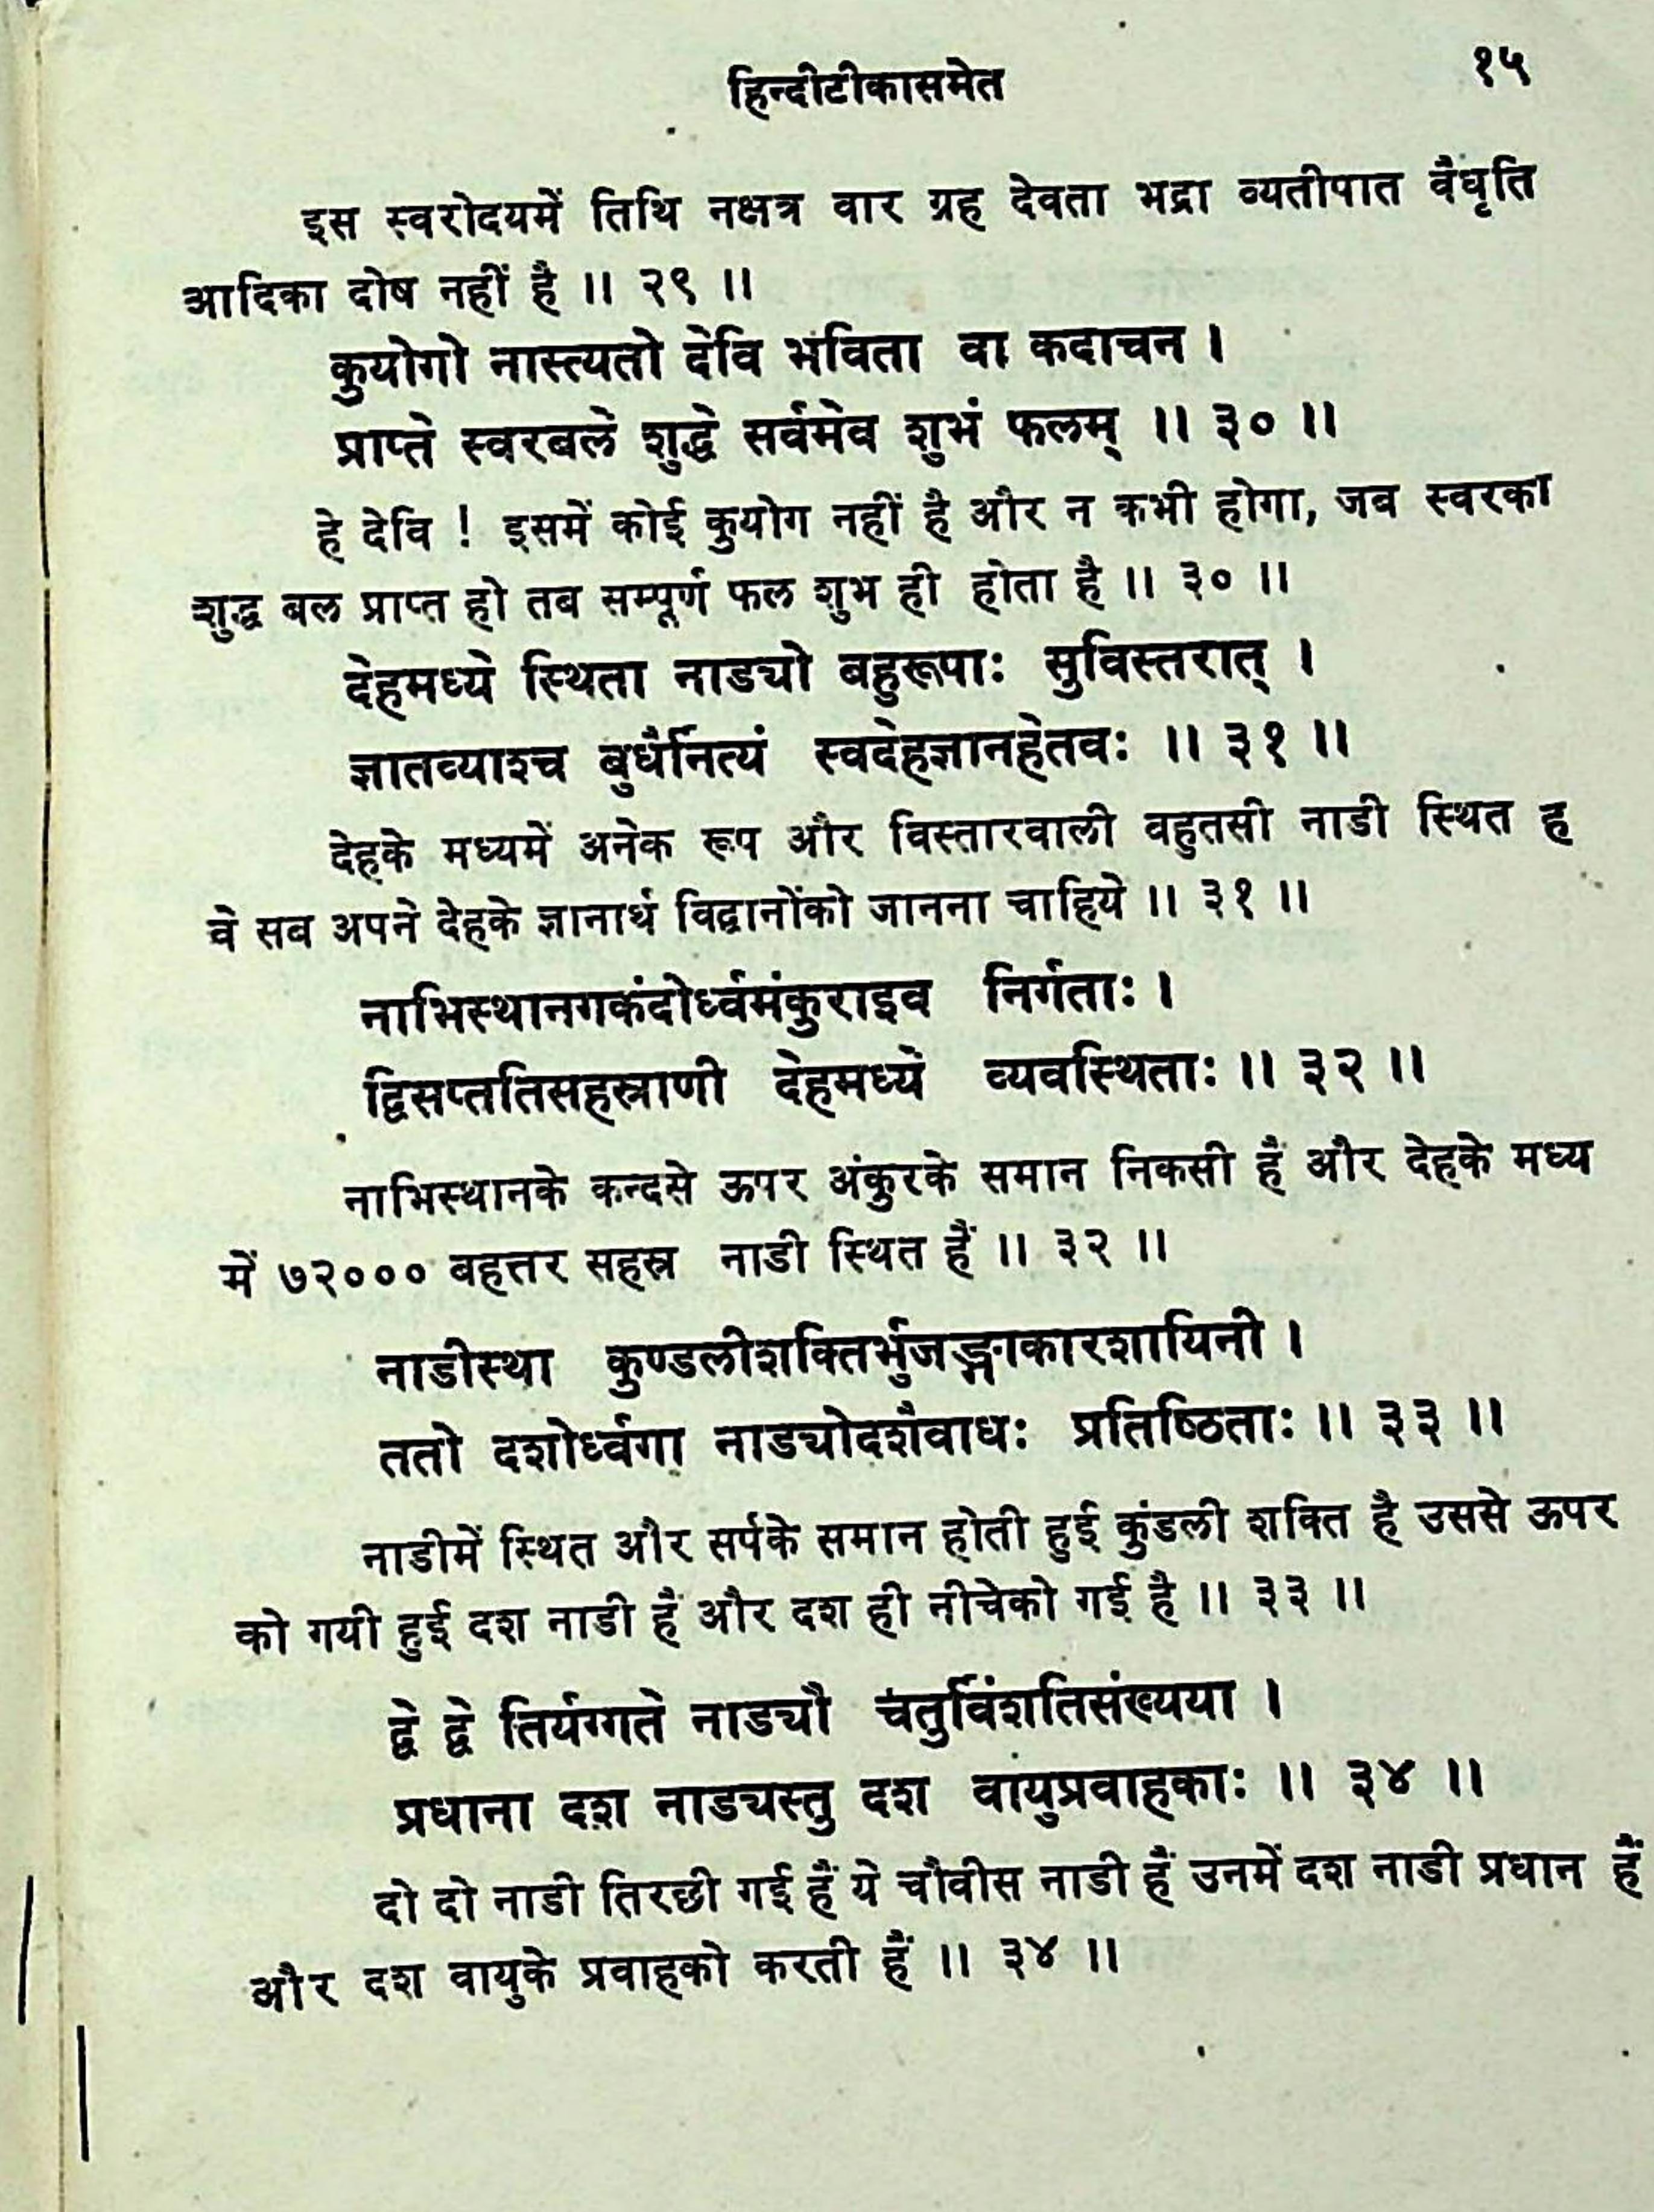 हिन्दीटीकासमेत १५
इस स्वरोदयमें तिथि नक्षत्र वार ग्रह देवता भद्रा व्यतीपात वैधृति
आदिका दोष नहीं है ॥ २९ ॥
कुयोगो नास्त्यतो देवि भविता वा कदाचन ।
प्राप्ते स्वरबले शुद्धे सर्वमेव शुभं फलम् ॥ ३० ॥
हे देवि ! इसमें कोई कुयोग नहीं है और न कभी होगा, जब स्वरका
शुद्ध बल प्राप्त हो तब सम्पूर्ण फल शुभ ही होता है ॥ ३० ॥
देहमध्ये स्थिता नाड्यो बहुरूपाः सुविस्तरात् ।
ज्ञातव्याश्च बुधैर्नित्यं स्वदेहज्ञानहेतवः ॥ ३१ ॥
देहके मध्यमें अनेक रूप और विस्तारवाली वहुतसी नाडी स्थित ह
वे सब अपने देहके ज्ञानार्थ विद्वानोंको जानना चाहिये ॥ ३१ ॥
नाभिस्थानगकंदोर्ध्वमंकुराइव निर्गताः ।
द्विसप्ततिसहस्राणी देहमध्ये व्यवस्थिताः ॥ ३२ ॥
नाभिस्थानके कन्दसे ऊपर अंकुरके समान निकसी हैं और देहके मध्य
में ७२००० बहत्तर सहस्र नाडी स्थित हैं ॥ ३२ ॥
नाडीस्था कुण्डलीशक्तिर्भुजङ्गाकारशायिनी ।
ततो दशोर्ध्वगा नाड्योदशैवाधः प्रतिष्ठिताः ॥ ३३ ॥
नाडीमें स्थित और सर्पके समान होती हुई कुंडली शक्ति है उससे ऊपर
को गयी हुई दश नाडी हैं और दश ही नीचेको गई है ॥ ३३ ॥
द्वे द्वे तिर्यग्गते नाड्यौ चतुर्विंशतिसंख्यया ।
प्रधाना दश नाड्यस्तु दश वायुप्रवाहकाः ॥ ३४ ॥
दो दो नाडी तिरछी गई हैं ये चौवीस नाडी हैं उनमें दश नाडी प्रधान हैं
और दश वायुके प्रवाहको करती हैं ॥ ३४ ॥